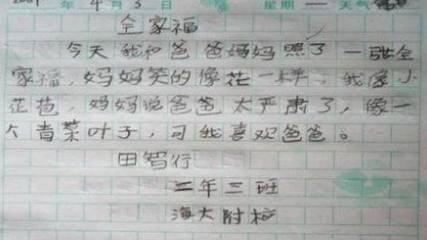 年 4月3日 星期一 天气
全家福
今天我和爸爸妈妈照了一张全
家福，妈妈笑的像花一样，我像小
花苞，妈妈说爸爸太严肃了，像一
个青菜叶子，可我喜欢爸爸。
田智行
二年三班
海大附校